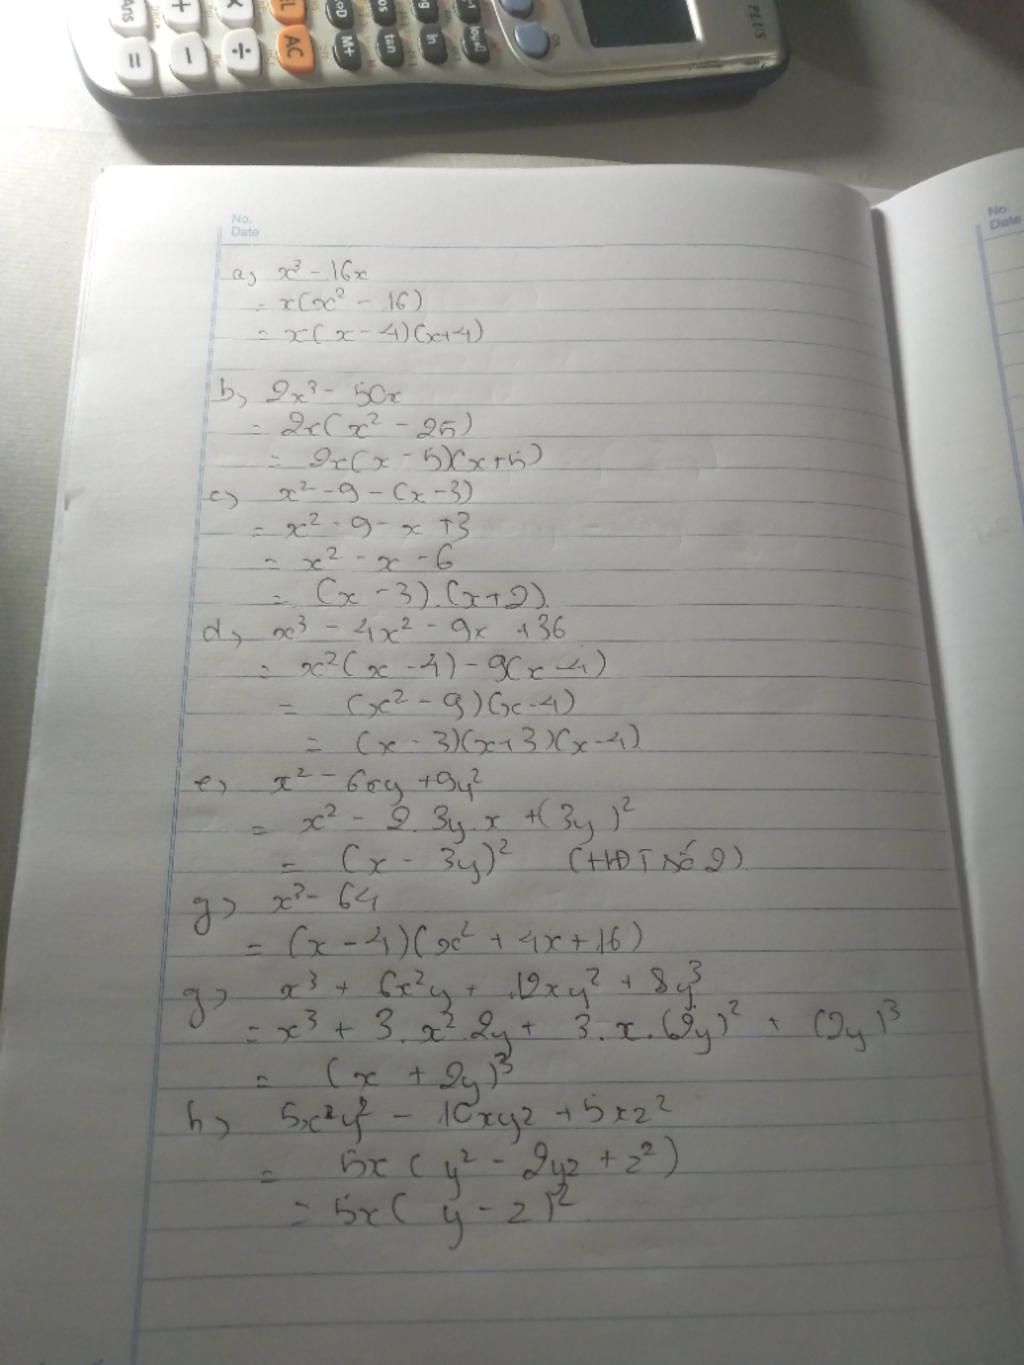 Ans + x EL oD os g
= - ÷ AC M+ tan ln log□
PLUS
No.
Date
No.
Date
a) x³ - 16x
= x(x² - 16)
= x(x - 4)(x+4)
b) 2x³ - 50x
= 2x(x² - 25)
= 2x(x - 5)(x+5)
c) x² - 9 - (x - 3)
= x² - 9 - x + 3
= x² - x - 6
= (x - 3).(x+2).
d) x³ - 4x² - 9x + 36
= x²(x - 4) - 9(x - 4)
= (x² - 9)(x - 4)
= (x - 3)(x+3)(x-4)
e) x² - 6xy + 9y²
= x² - 2.3y.x + (3y)²
= (x - 3y)² (HĐT số 2)
g) x³ - 64
= (x - 4)(x² + 4x + 16)
g) x³ + 6x²y + 12xy² + 8y³
= x³ + 3.x².2y + 3.x.(2y)² + (2y)³
= (x + 2y)³
h) 5x²y² - 10xyz + 5xz²
= 5x(y² - 2yz + z²)
= 5x(y - z)²